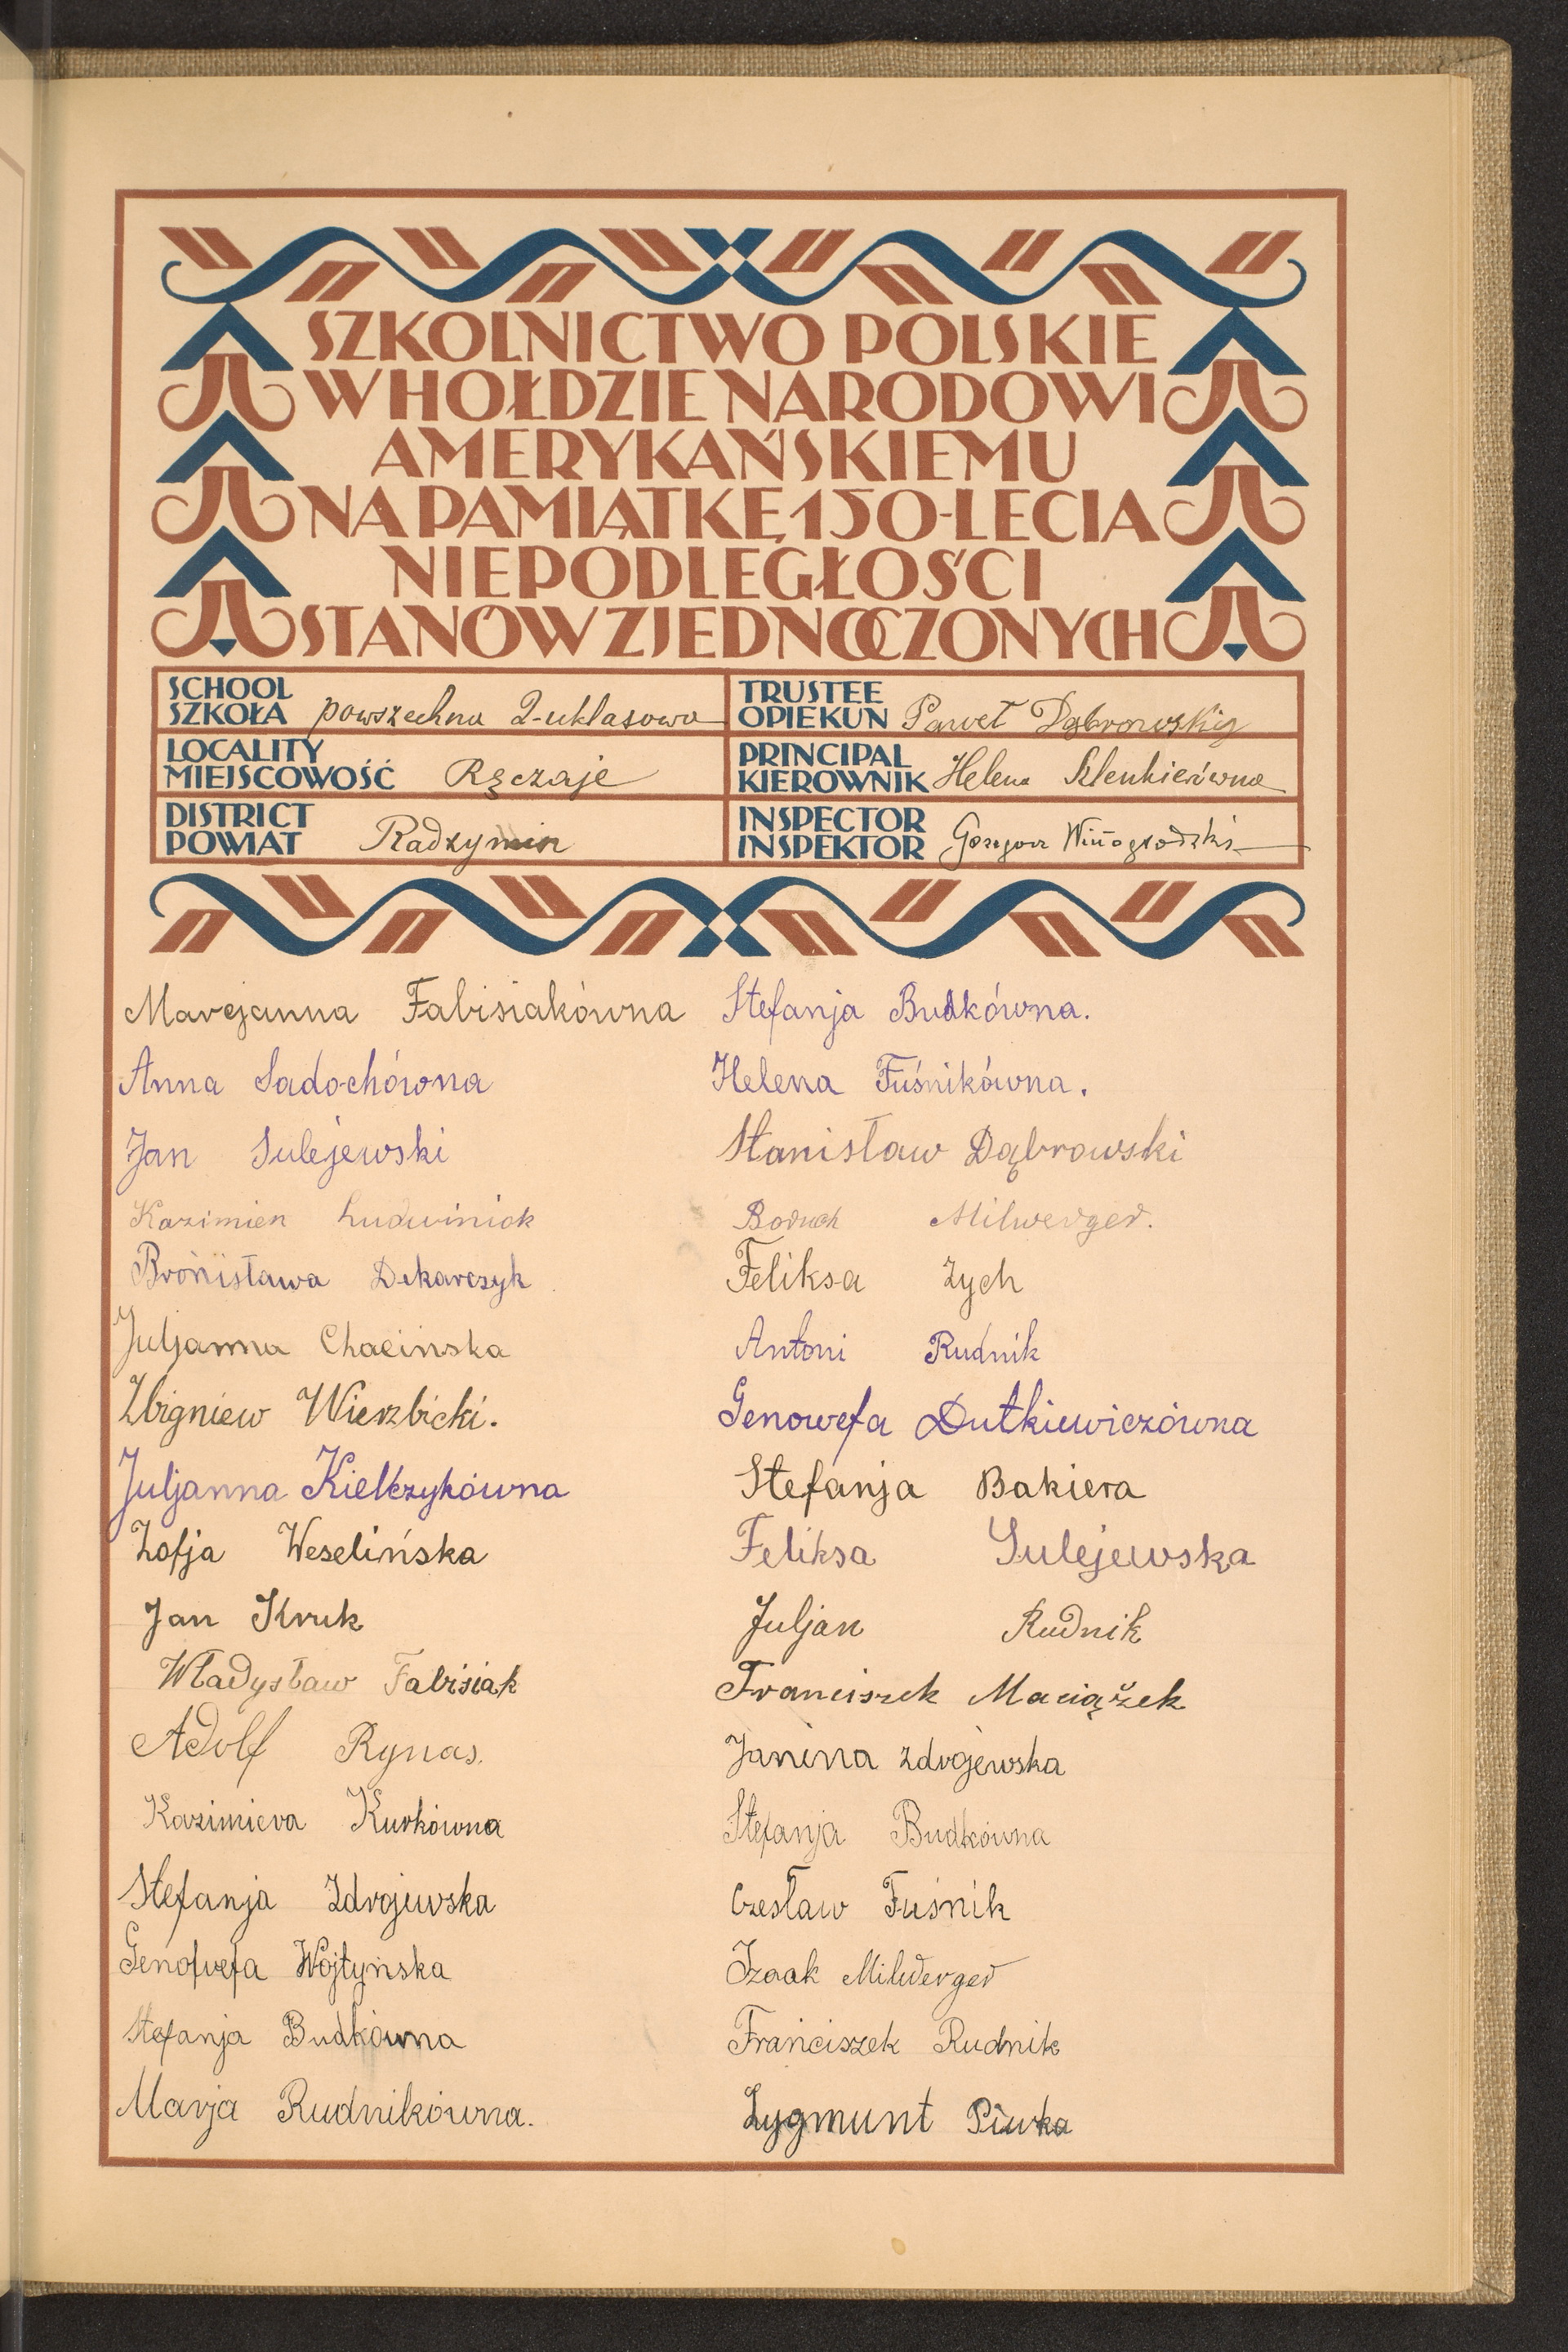 SZKOLNICTWO POLSKIE
W HOŁDZIE NARODOWI
AMERYKAŃSKIEMU
NA PAMIĄTKĘ 150-LECIA
NIEPODLEGŁOŚCI
STANÓW ZJEDNOCZONYCH
SCHOOL
SZKOŁA powszechna 2-uklasowa
LOCALITY
MIEJSCOWOŚĆ Ręczaje
DISTRICT
POWIAT Radzymin
TRUSTEE
OPIEKUN Paweł
PRINCIPAL
KIEROWNIK Helena
INSPECTOR
INSPEKTOR Grzegorz Winogrodzki
Maryjanna Fabisiakówna
Anna Sadochówna
Jan Sulejewski
Kazimierz Ludwiniak
Bronisława Dekarczyk
Juljanna Chacińska
Zbigniew Wierzbicki.
Juljanna Kielczykówna
Zofja Weselińska
Jan Kruk
Władysław Fabisiak
Adolf Rynas.
Kazimiera Kurkówna
Stefanja Zdrojewska
Genofwefa Wojtyńska
Stefanja Budkówna
Marja Rudnikówna.
Stefanja Budkówna.
Helena Fuśnikówna.
Stanisław Dąbrowski
Boruch Milwerger.
Feliksa Zych
Antoni Rudnik
Genowefa Dutkiewiczówna
Stefanja Bakiera
Feliksa Sulejewska
Juljan Rudnik
Franciszek Maciążek
Janina Zdrojewska
Stefanja Budkówna
Czesław Fuśnik
Izaak Milwerger
Franciszek Rudnik
Zygmunt Piwka